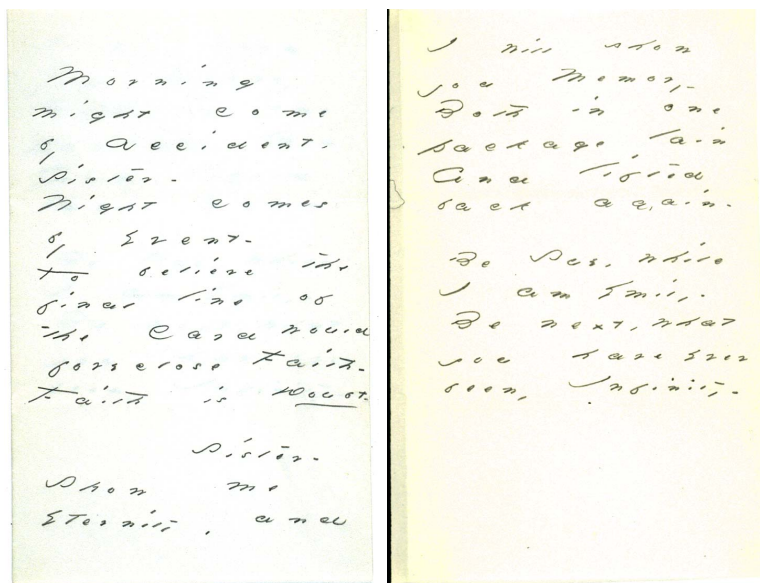 Morning
might come
by Accident -
Sister -
Night comes
by Event -
To believe the
final line of
the Card would
foreclose Faith -
Faith is Doubt -
Sister -
Show me
Eternity, and
I will show
you Memory -
Both in one
package lain
And lifted
back again -
Be Sue, while
I am Emily -
Be next, what
you have ever
been, Infinity -